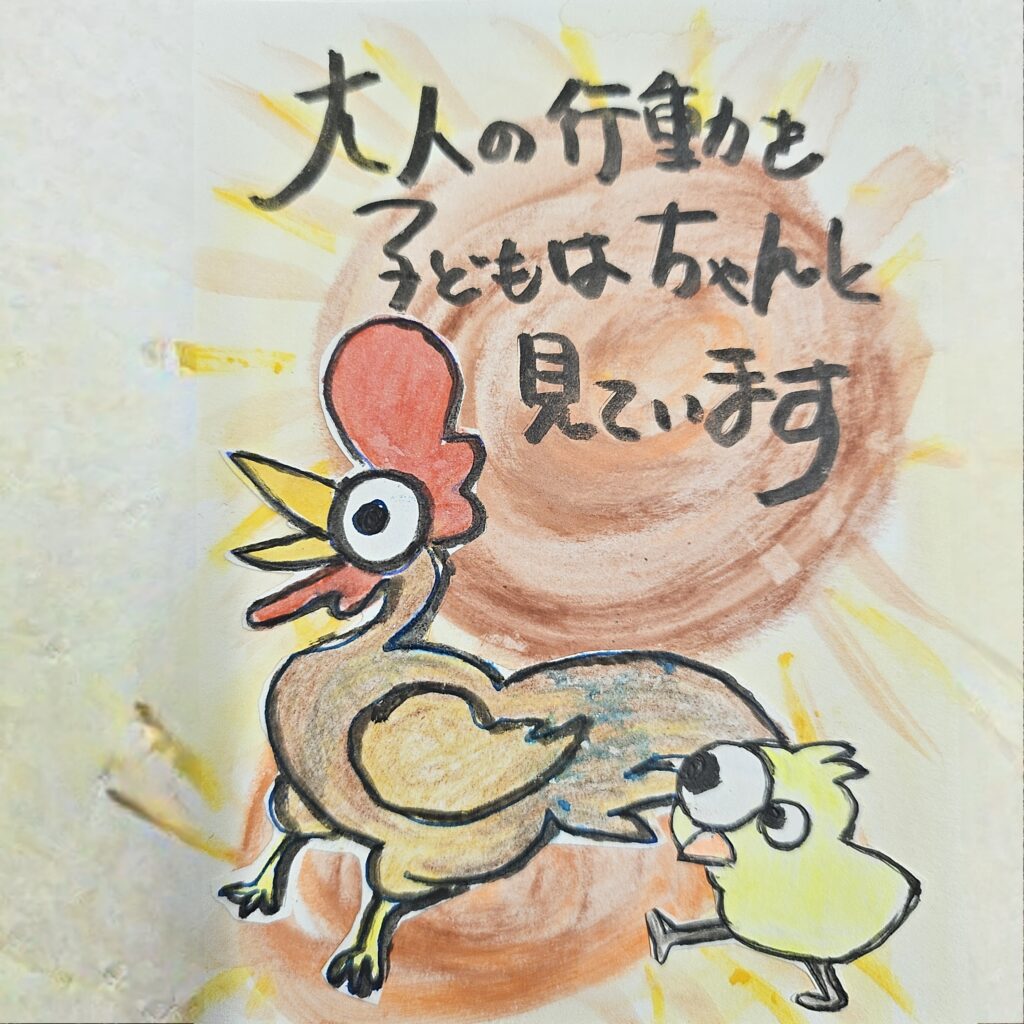 大人の行動を
子どもはちゃんと
見ています